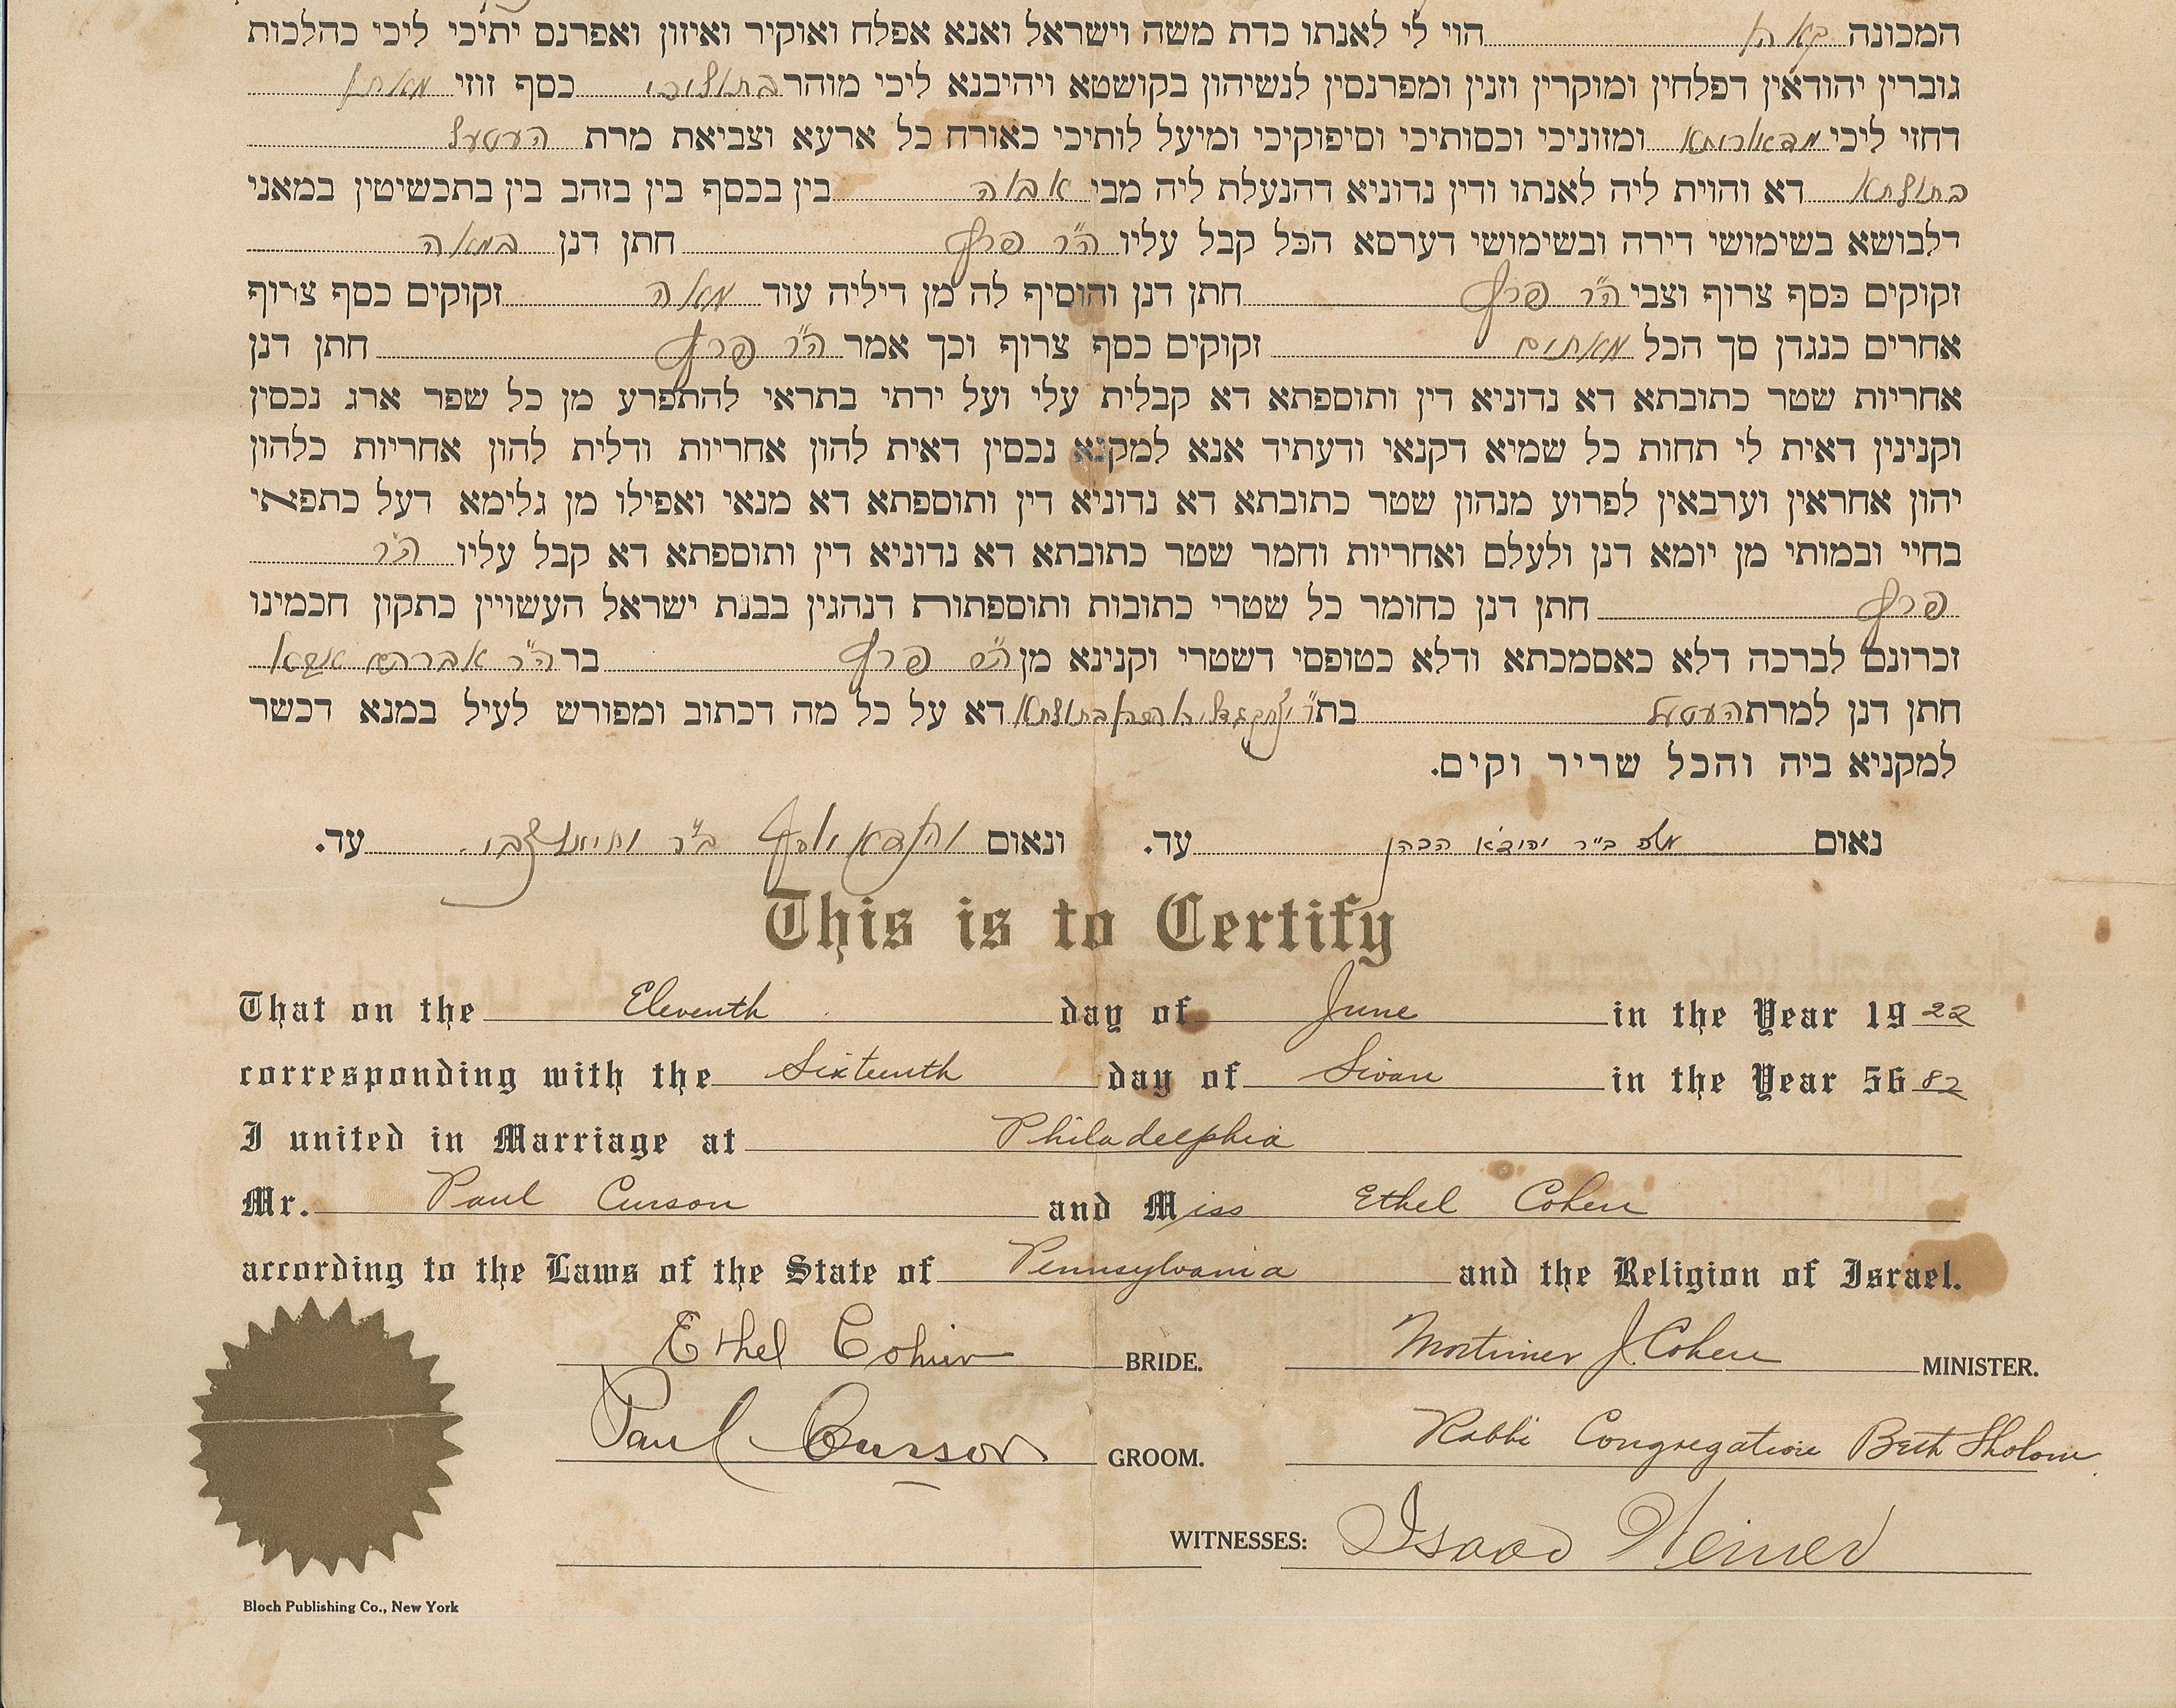 המכונה קאהן הוי לי לאנתו כדת משה וישראל ואנא אפלח ואוקיר ואיזון ואפרנס יתיכי ליכי כהלכות
גוברין יהודאין דפלחין ומוקרין וזנין ומפרנסין לנשיהון בקושטא ויהיבנא ליכי מוהר בתוליכי כסף זוזי מאתן
דחזי ליכי מדאורייתא ומזוניכי וכסותיכי וסיפוקיכי ומיעל לותיכי כאורח כל ארעא וצביאת מרת העטעל
בתולתא דא והוית ליה לאנתו ודין נדוניא דהנעלת ליה מבי אבוה בין בכסף בין בזהב בין בתכשיטין במאני
דלבושא בשימושי דירה ובשימושי דערסא הכל קבל עליו ה"ר פרץ חתן דנן במאה
זקוקים כסף צרוף וצבי ה"ר פרץ חתן דנן והוסיף לה מן דיליה עוד מאה זקוקים כסף צרוף
אחרים כנגדן סך הכל מאתים זקוקים כסף צרוף וכך אמר ה"ר פרץ חתן דנן
אחריות שטר כתובתא דא נדוניא דין ותוספתא דא קבלית עלי ועל ירתי בתראי להתפרע מן כל שפר ארג נכסין
וקנינין דאית לי תחות כל שמיא דקנאי ודעתיד אנא למקנא נכסין דאית להון אחריות ודלית להון אחריות כלהון
יהון אחראין וערבאין לפרוע מנהון שטר כתובתא דא נדוניא דין ותוספתא דא מנאי ואפילו מן גלימא דעל כתפאי
בחיי ובמותי מן יומא דנן ולעלם ואחריות וחמר שטר כתובתא דא נדוניא דין ותוספתא דא קבל עליו ה"ר
פרץ חתן דנן כחומר כל שטרי כתובות ותוספתות דנהגין בבנת ישראל העשויין כתקון חכמינו
זכרונם לברכה דלא כאסמכתא ודלא כטופסי דשטרי וקנינא מן ה"ר פרץ בר ה"ר אברהם
חתן דנן למרת העטעל בת ר' בתולתא דא על כל מה דכתוב ומפורש לעיל במנא דכשר
למקניא ביה והכל שריר וקים.
נאום משה ב"ר יהודא הכהן עד. ונאום ב"ר עד.
This is to Certify
That on the Eleventh day of June in the Year 1922
corresponding with the Sixteenth day of Sivan in the Year 5682
I united in Marriage at Philadelphia
Mr. Paul Curson and Miss Ethel Cohen
according to the Laws of the State of Pennsylvania and the Religion of Israel.
Ethel Cohen BRIDE. Mortimer J. Cohen MINISTER.
Paul Curson GROOM. Rabbi Congregation Beth Sholom
WITNESSES: Isaac Weiner
Bloch Publishing Co., New York